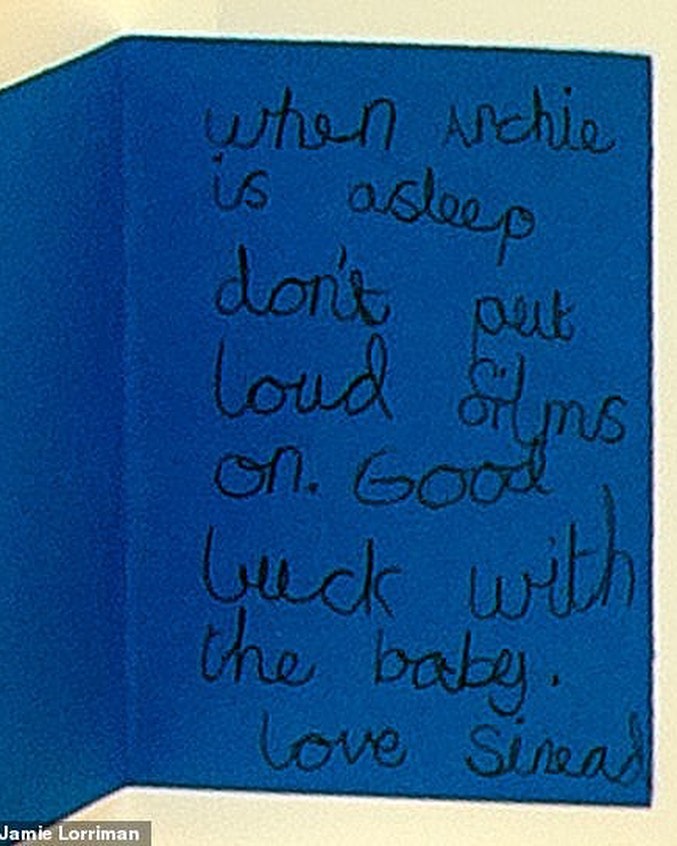 when Archie
is asleep
don't put
loud films
on. Good
luck with
the baby.
love Sinead
Jamie Lorriman